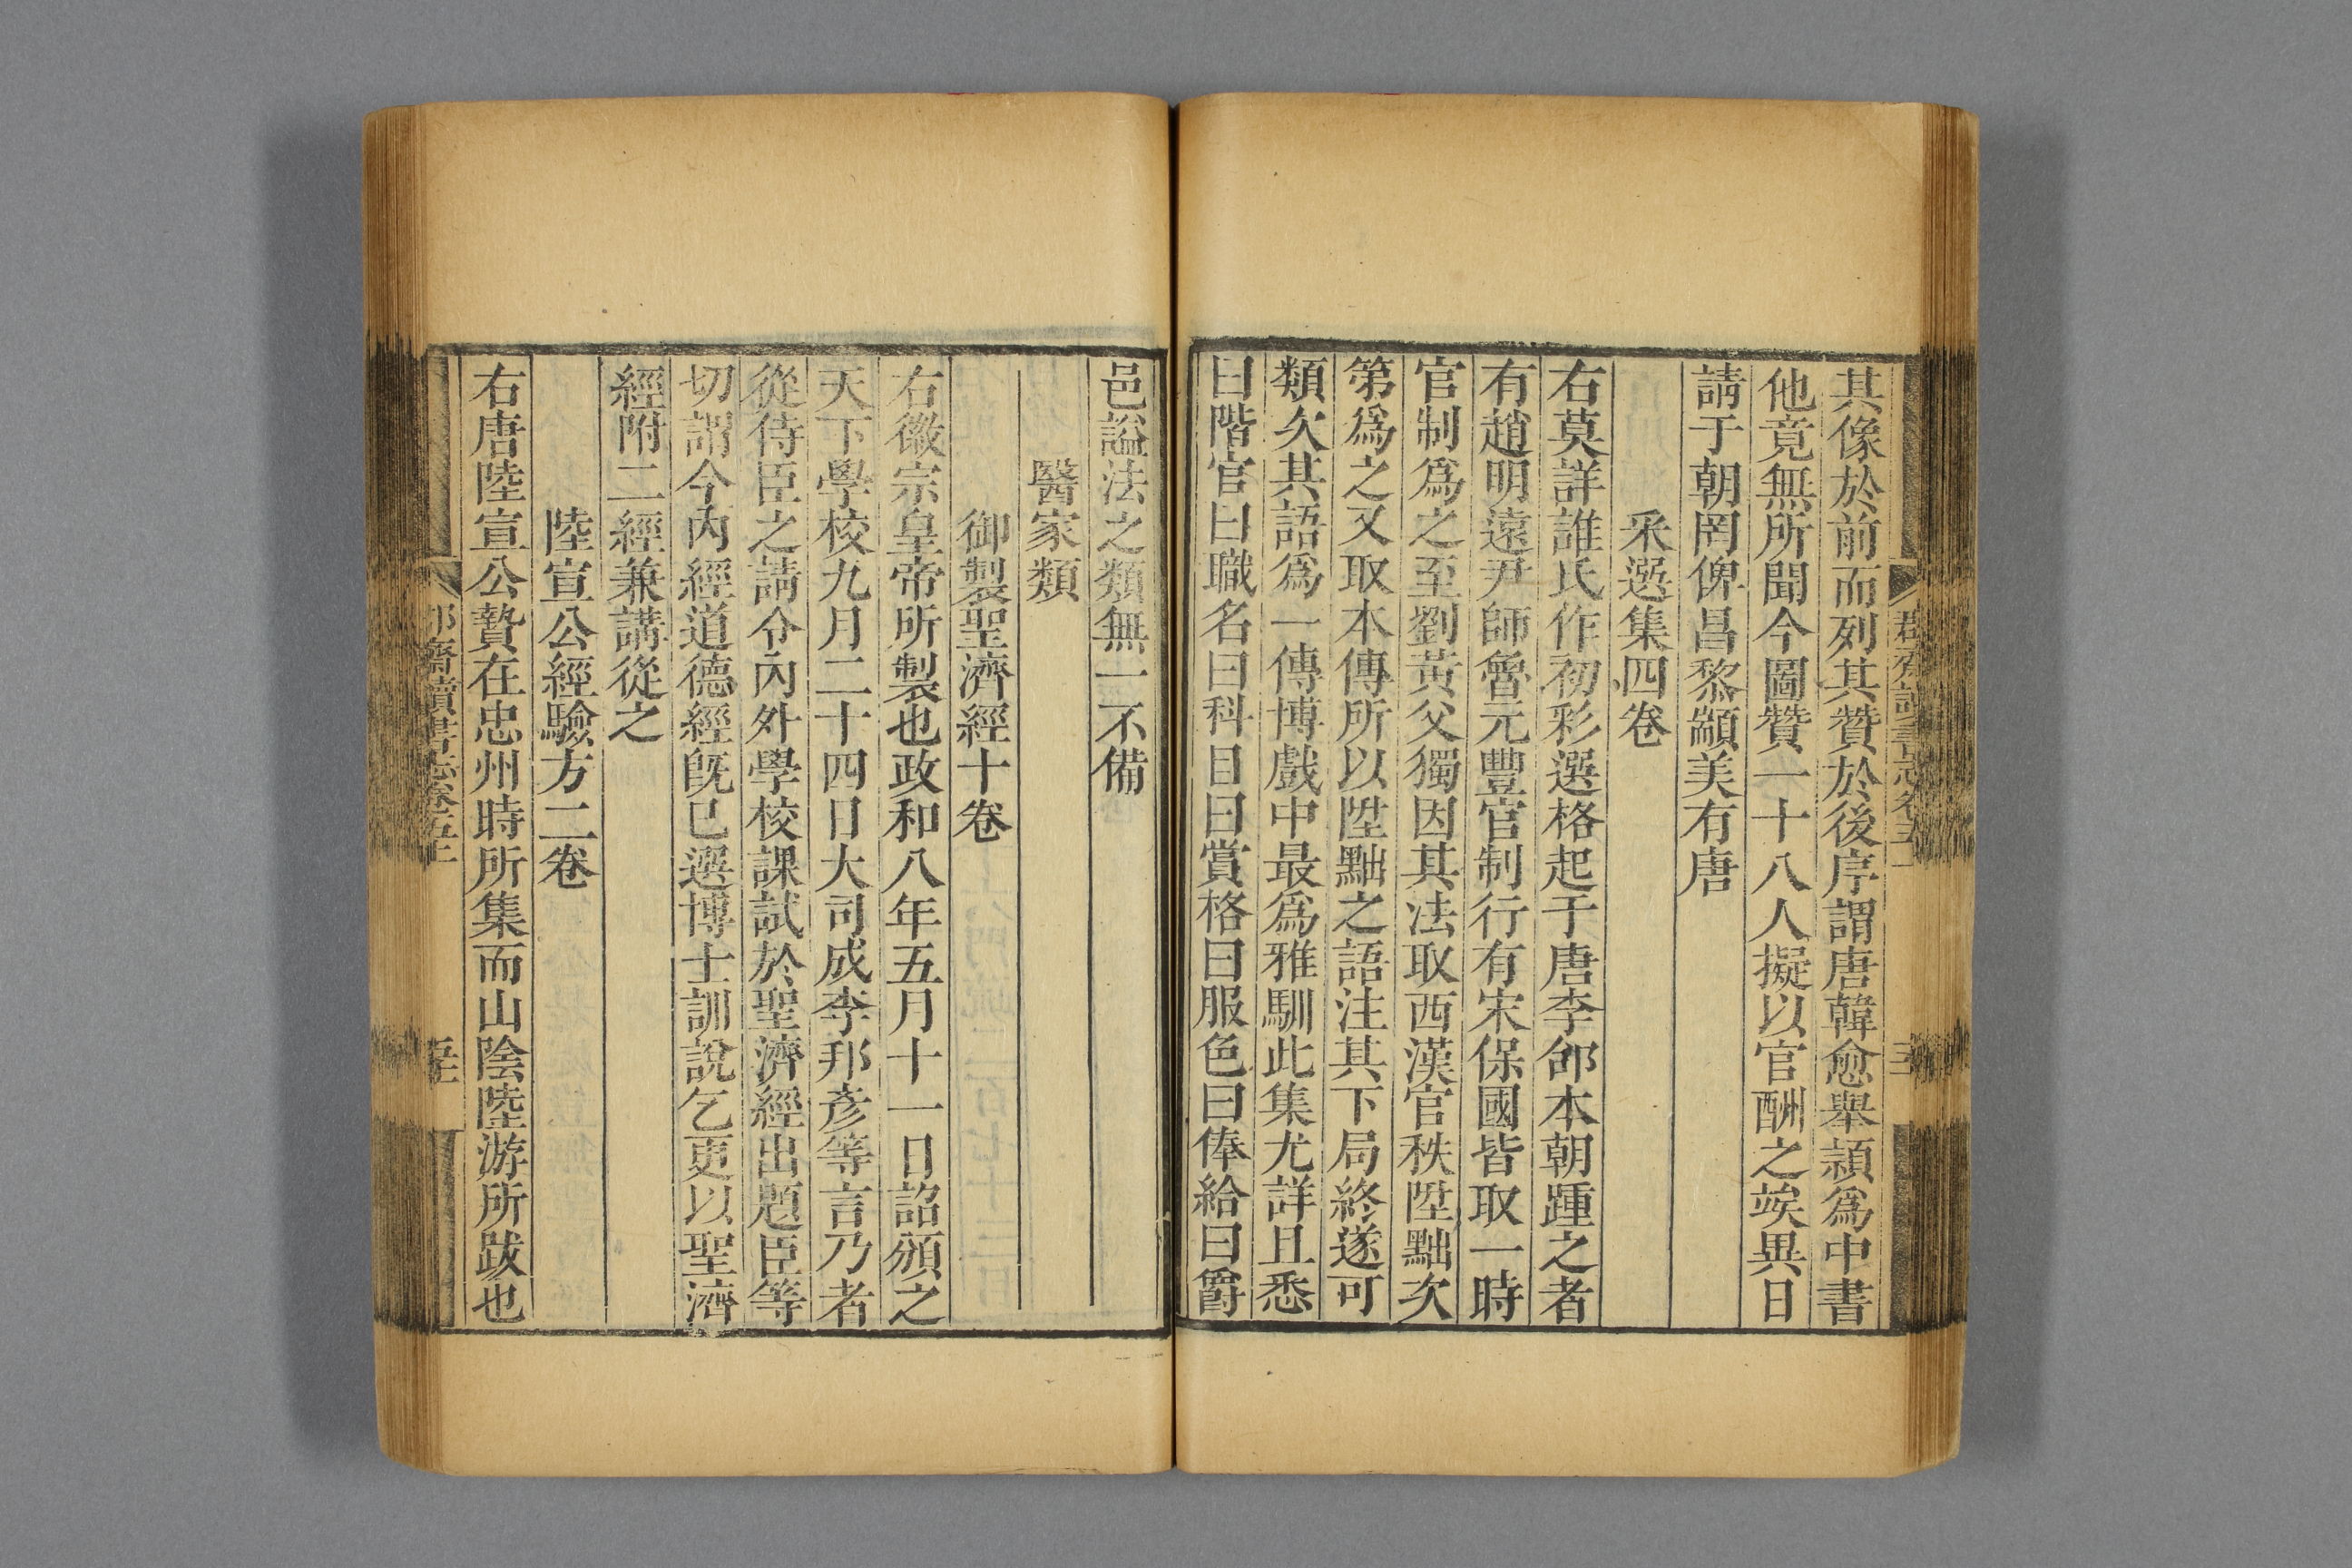 其像於前而列其贊於後序謂唐韓愈舉潁爲中書
他竟無所聞今圖贊一十八人擬以官酬之竢異日
請于朝罔俾昌黎顓美有唐
采選集四卷
右莫詳誰氏作初彩選格起于唐李郃本朝踵之者
有趙明遠尹師魯元豐官制行有宋保國皆取一時
官制爲之至劉貢父獨因其法取西漢官秩陞黜次
第爲之又取本傳所以陞黜之語注其下局終遂可
類次其語爲一傳博戲中最爲雅馴此集尤詳且悉
曰階官曰職名曰科目曰賞格曰服色曰俸給曰爵
邑謚法之類無一不備
醫家類
御製聖濟經十卷
右徽宗皇帝所製也政和八年五月十一日詔頒之
天下學校九月二十四日大司成李邦彥等言乃者
從侍臣之請令內外學校課試於聖濟經出題臣等
切謂今內經道德經旣已選博士訓說乞更以聖濟
經附二經兼講從之
陸宣公經驗方二卷
右唐陸宣公贄在忠州時所集而山陰陸游所跋也
齋讀書志卷五上